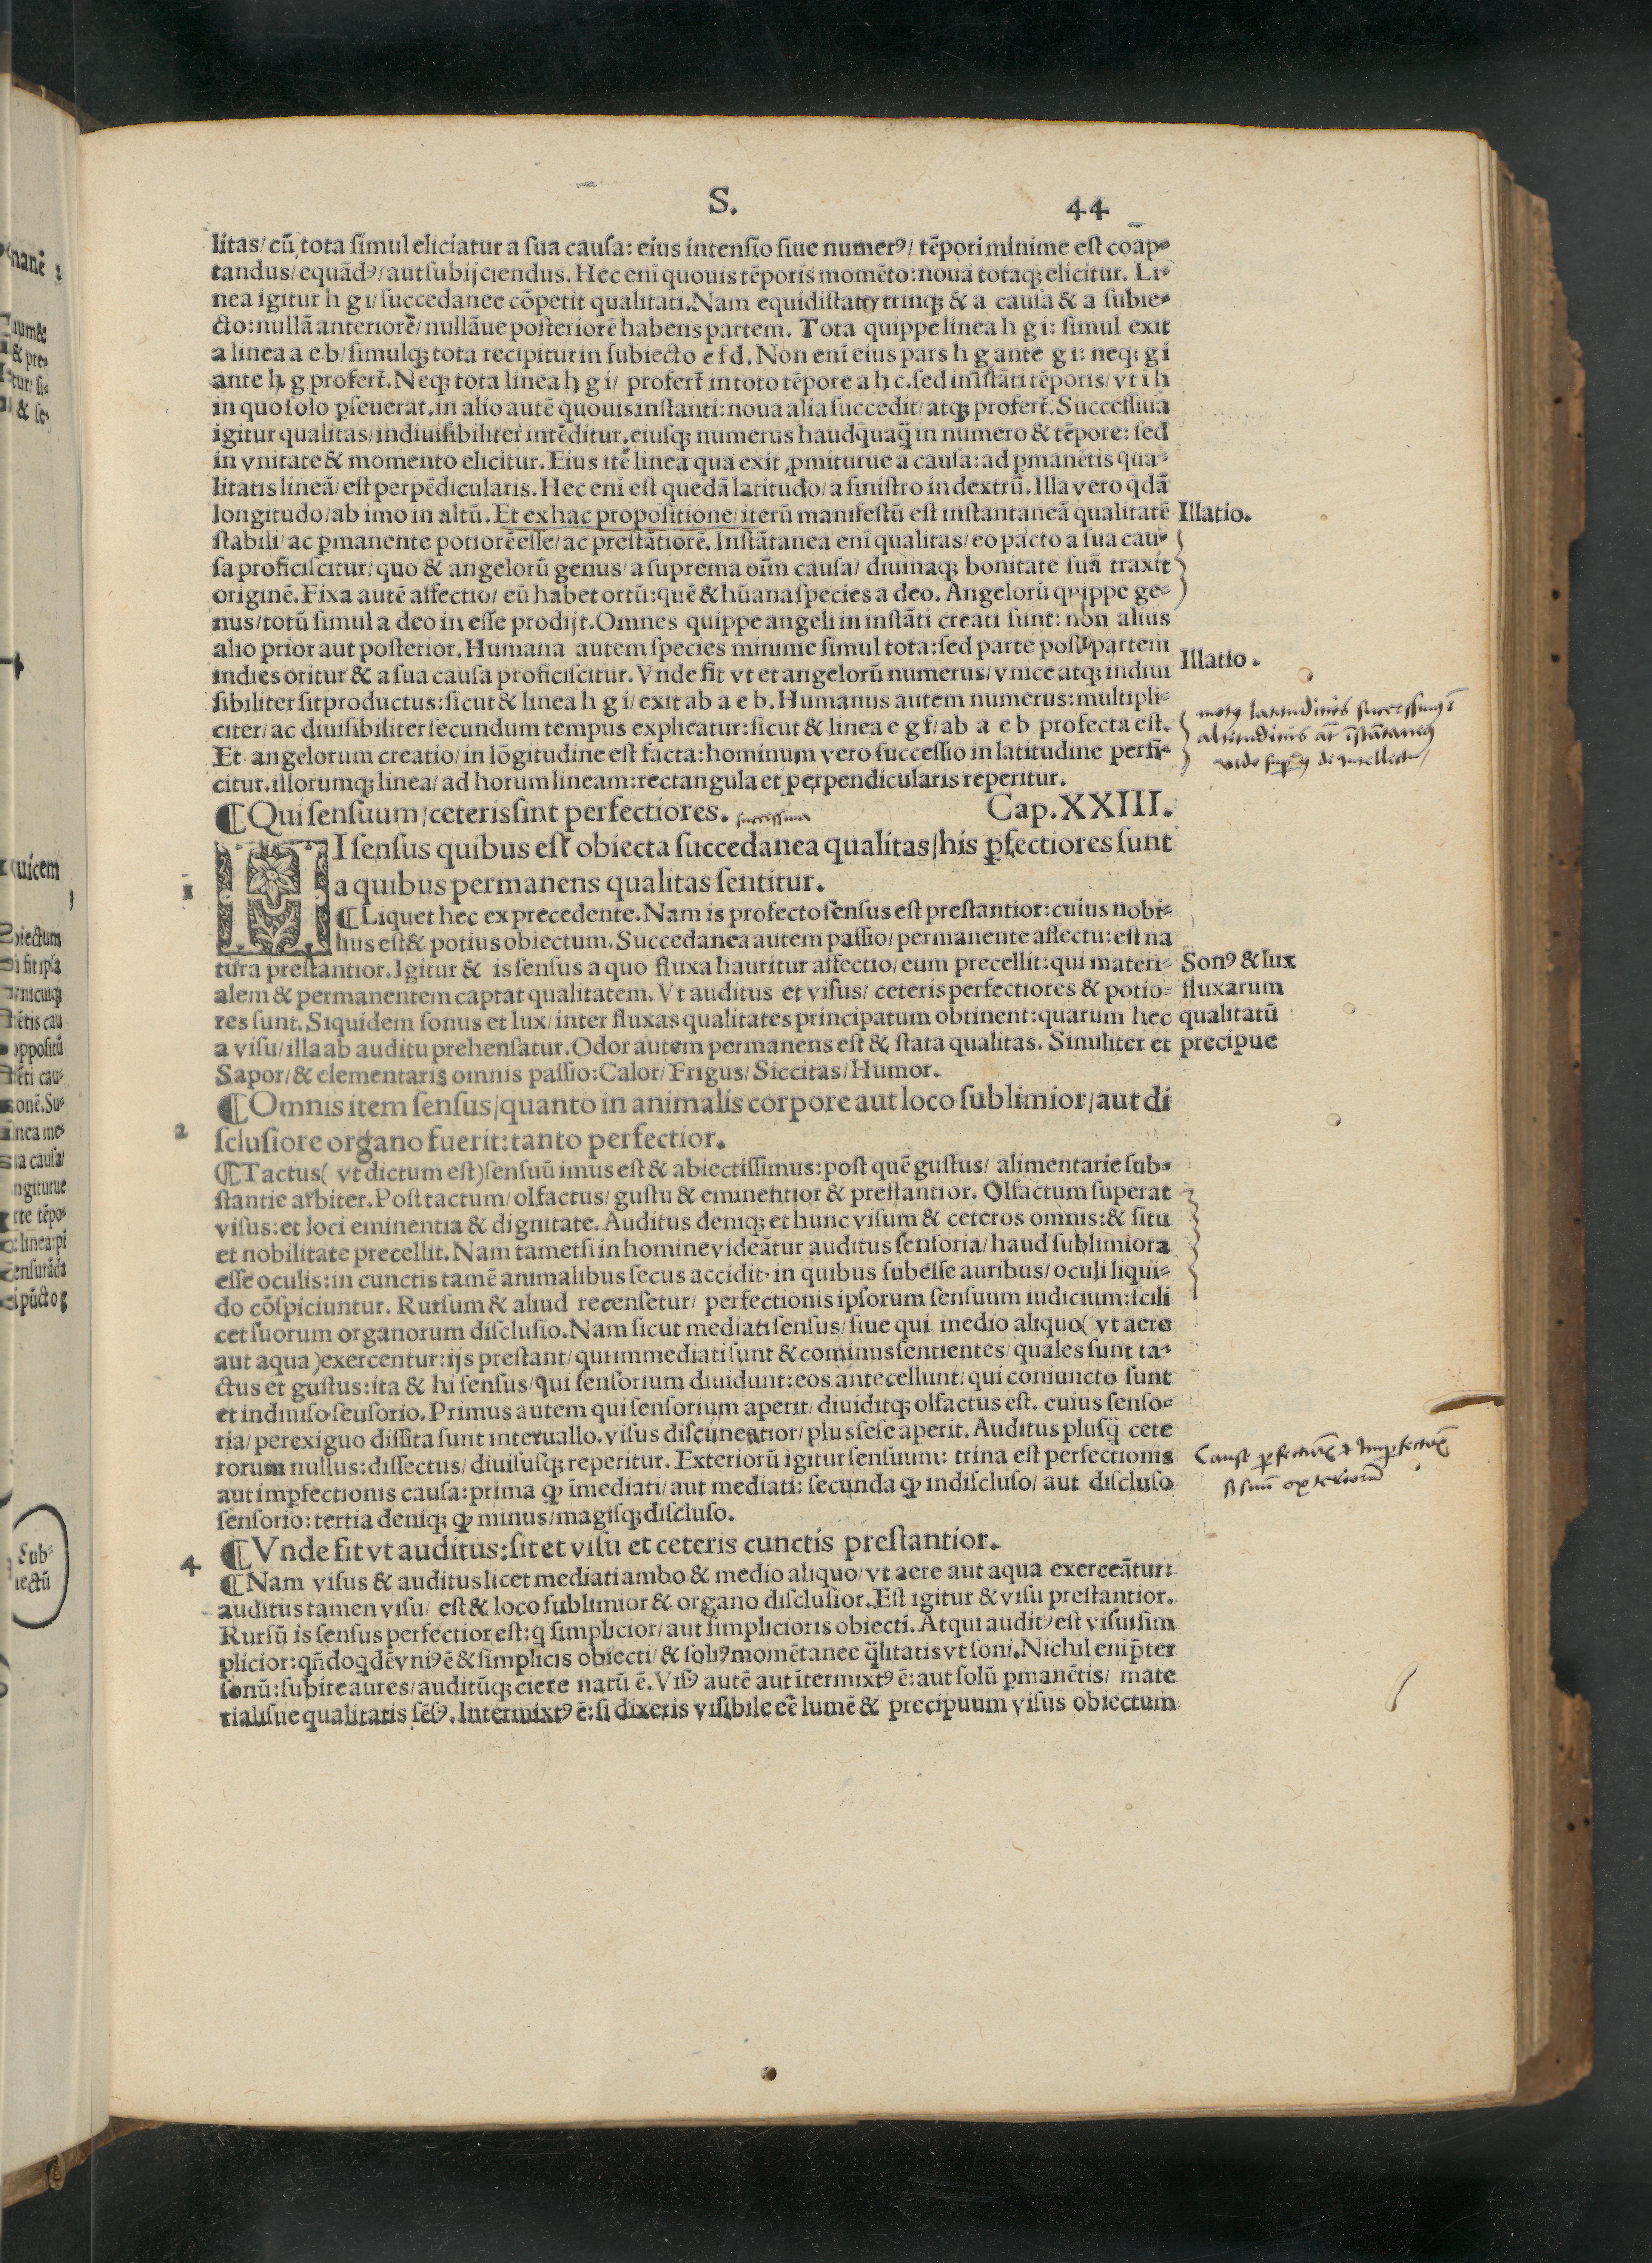 S. 44
litas/ cũ tota simul eliciatur a sua causa: eius intensio siue numerꝰ/ tẽpori minime est coãp-
tandus/ equãdꝰ/ aut subijciendus. Hec eni quouis tẽporis momẽto: noua totaqꝫ elicitur. Li-
nea igitur h g i/ succedanee cõpetit qualitati. Nam equidistat vtrinqꝫ & a causa & a subie-
cto: nullã anteriorẽ/ nullãue posteriorẽ habens partem. Tota quippe linea h g i: simul exit
a linea a e b/ simulqꝫ tota recipitur in subiecto e f d. Non eni eius pars h g ante g i: neqꝫ g i
ante h g profert̃. Neqꝫ tota linea h g i/ profert̃ in toto tẽpore a h c. sed in ĩstãti tẽporis/ vt i h
in quo solo ꝑseuerat. in alio autẽ quouis instanti: noua alia succedit/ atqꝫ profert̃. Successiua
igitur qualitas/ indiuisibiliter intẽditur. eiusqꝫ numerus haudquaq̃ in numero & tẽpore: sed
in vnitate & momento elicitur. Eius itẽ linea qua exit ꝓmiturue a causa: ad ꝑmanẽtis qua-
litatis lineã/ est perpẽdicularis. Hec eni est quedã latitudo/ a sinistro in dextrũ. Illa vero q̃dã
longitudo/ ab imo in altũ. Et ex hac propositione/ iterũ manifestũ est instantaneã qualitatẽ
Illatio.
stabili/ ac ꝑmanente potiorẽ esse/ ac prestãtiorẽ. Instãtanea eni qualitas/ eo pacto a sua cau-
sa proficiscitur/ quo & angelorũ genus/ a suprema oĩm causa/ diuinaqꝫ bonitate suã traxit
originẽ. Fixa autẽ affectio/ eũ habet ortũ: quẽ & hũana species a deo. Angelorũ quippe ge-
nus/ totũ simul a deo in esse prodijt. Omnes quippe angeli in instãti creati sunt: non alius
alio prior aut posterior. Humana autem species minime simul tota: sed parte post partem
Illatio.
indies oritur & a sua causa proficiscitur. Vnde fit vt et angelorũ numerus/ vnice atqꝫ indiui
sibiliter sit productus: sicut & linea h g i/ exit ab a e b. Humanus autem numerus: multipli-
citer/ ac diuisibiliter secundum tempus explicatur: sicut & linea e g f/ ab a e b profecta est.
Et angelorum creatio/ in lõgitudine est facta: hominum vero successio in latitudine perfi-
citur. illorumqꝫ linea/ ad horum lineam: rectangula et perpendicularis reperitur.
¶ Qui sensuum/ ceteris sint perfectiores. Cap. XXIII.
HI sensus quibus est obiecta succedanea qualitas/ his ꝑfectiores sunt
1
a quibus permanens qualitas sentitur.
¶ Liquet hec ex precedente. Nam is profecto sensus est prestantior: cuius nobi-
lius est & potius obiectum. Succedanea autem passio/ permanente affectu: est na
tura prestantior. Igitur & is sensus a quo fluxa hauritur affectio/ eum precellit: qui materi-
alem & permanentem captat qualitatem. Vt auditus et visus/ ceteris perfectiores & potio-
res sunt. Siquidem sonus et lux/ inter fluxas qualitates principatum obtinent: quarum hec
a visu/ illa ab auditu prehensatur. Odor autem permanens est & stata qualitas. Similiter et
Sonꝰ & lux
fluxarum
qualitatũ
precipue
Sapor/ & elementaris omnis passio: Calor/ Frigus/ Siccitas/ Humor.
¶ Omnis item sensus/ quanto in animalis corpore aut loco sublimior/ aut di
2
sclusiore organo fuerit: tanto perfectior.
¶ Tactus ( vt dictum est) sensuũ imus est & abiectissimus: post quẽ gustus/ alimentarie sub-
stantie arbiter. Post tactum/ olfactus/ gustu & eminentior & prestantior. Olfactum superat
visus: et loci eminentia & dignitate. Auditus deniqꝫ et hunc visum & ceteros omnis: & situ
et nobilitate precellit. Nam tametsi in homine videãtur auditus sensoria/ haud sublimiora
esse oculis: in cunctis tamẽ animalibus secus accidit. in quibus subesse auribus/ oculi liqui-
do cõspiciuntur. Rursum & aliud recensetur/ perfectionis ipsorum sensuum iudicium: scili
cet suorum organorum disclusio. Nam sicut mediati sensus/ siue qui medio aliquo ( vt aere
aut aqua ) exercentur: ijs prestant/ qui immediati sunt & cominus sentientes/ quales sunt ta-
ctus et gustus: ita & hi sensus/ qui sensorium diuidunt: eos antecellunt/ qui coniuncto sunt
et indiuiso sensorio. Primus autem qui sensorium aperit/ diuiditqꝫ olfactus est. cuius senso-
ria/ perexiguo dissita sunt interuallo. visus discuneatior/ plus sese aperit. Auditus plusq̃ cete
rorum nullus: dissectus/ diuisusqꝫ reperitur. Exteriorũ igitur sensuum: trina est perfectionis
aut imꝑfectionis causa: prima ꝙ ĩmediati/ aut mediati: secunda ꝙ indiscluso/ aut discluso
sensorio: tertia deniqꝫ ꝙ minus/ magisqꝫ discluso.
4
¶ Vnde fit vt auditus: sit et visu et ceteris cunctis prestantior.
¶ Nam visus & auditus licet mediati ambo & medio aliquo/ vt aere aut aqua exerceãtur:
auditus tamen visu/ est & loco sublimior & organo disclusior. Est igitur & visu prestantior.
Rursũ is sensus perfectior est: q simplicior/ aut simplicioris obiecti. Atqui auditꝰ est visu sim
plicior: qñdoqdẽ vniꝰ ẽ & simplicis obiecti/ & soliꝰ momẽtanee q̃litatis vt soni. Nichil eni p̃ter
sonũ: subire aures/ auditũqꝫ ciere natũ ẽ. Visꝰ autẽ aut ĩtermixtꝰ ẽ: aut solũ ꝑmanẽtis/ mate
rialisue qualitatis sẽsꝰ. Intermixtꝰ ẽ: si dixeris visibile eẽ lumẽ & precipuum visus obiectum